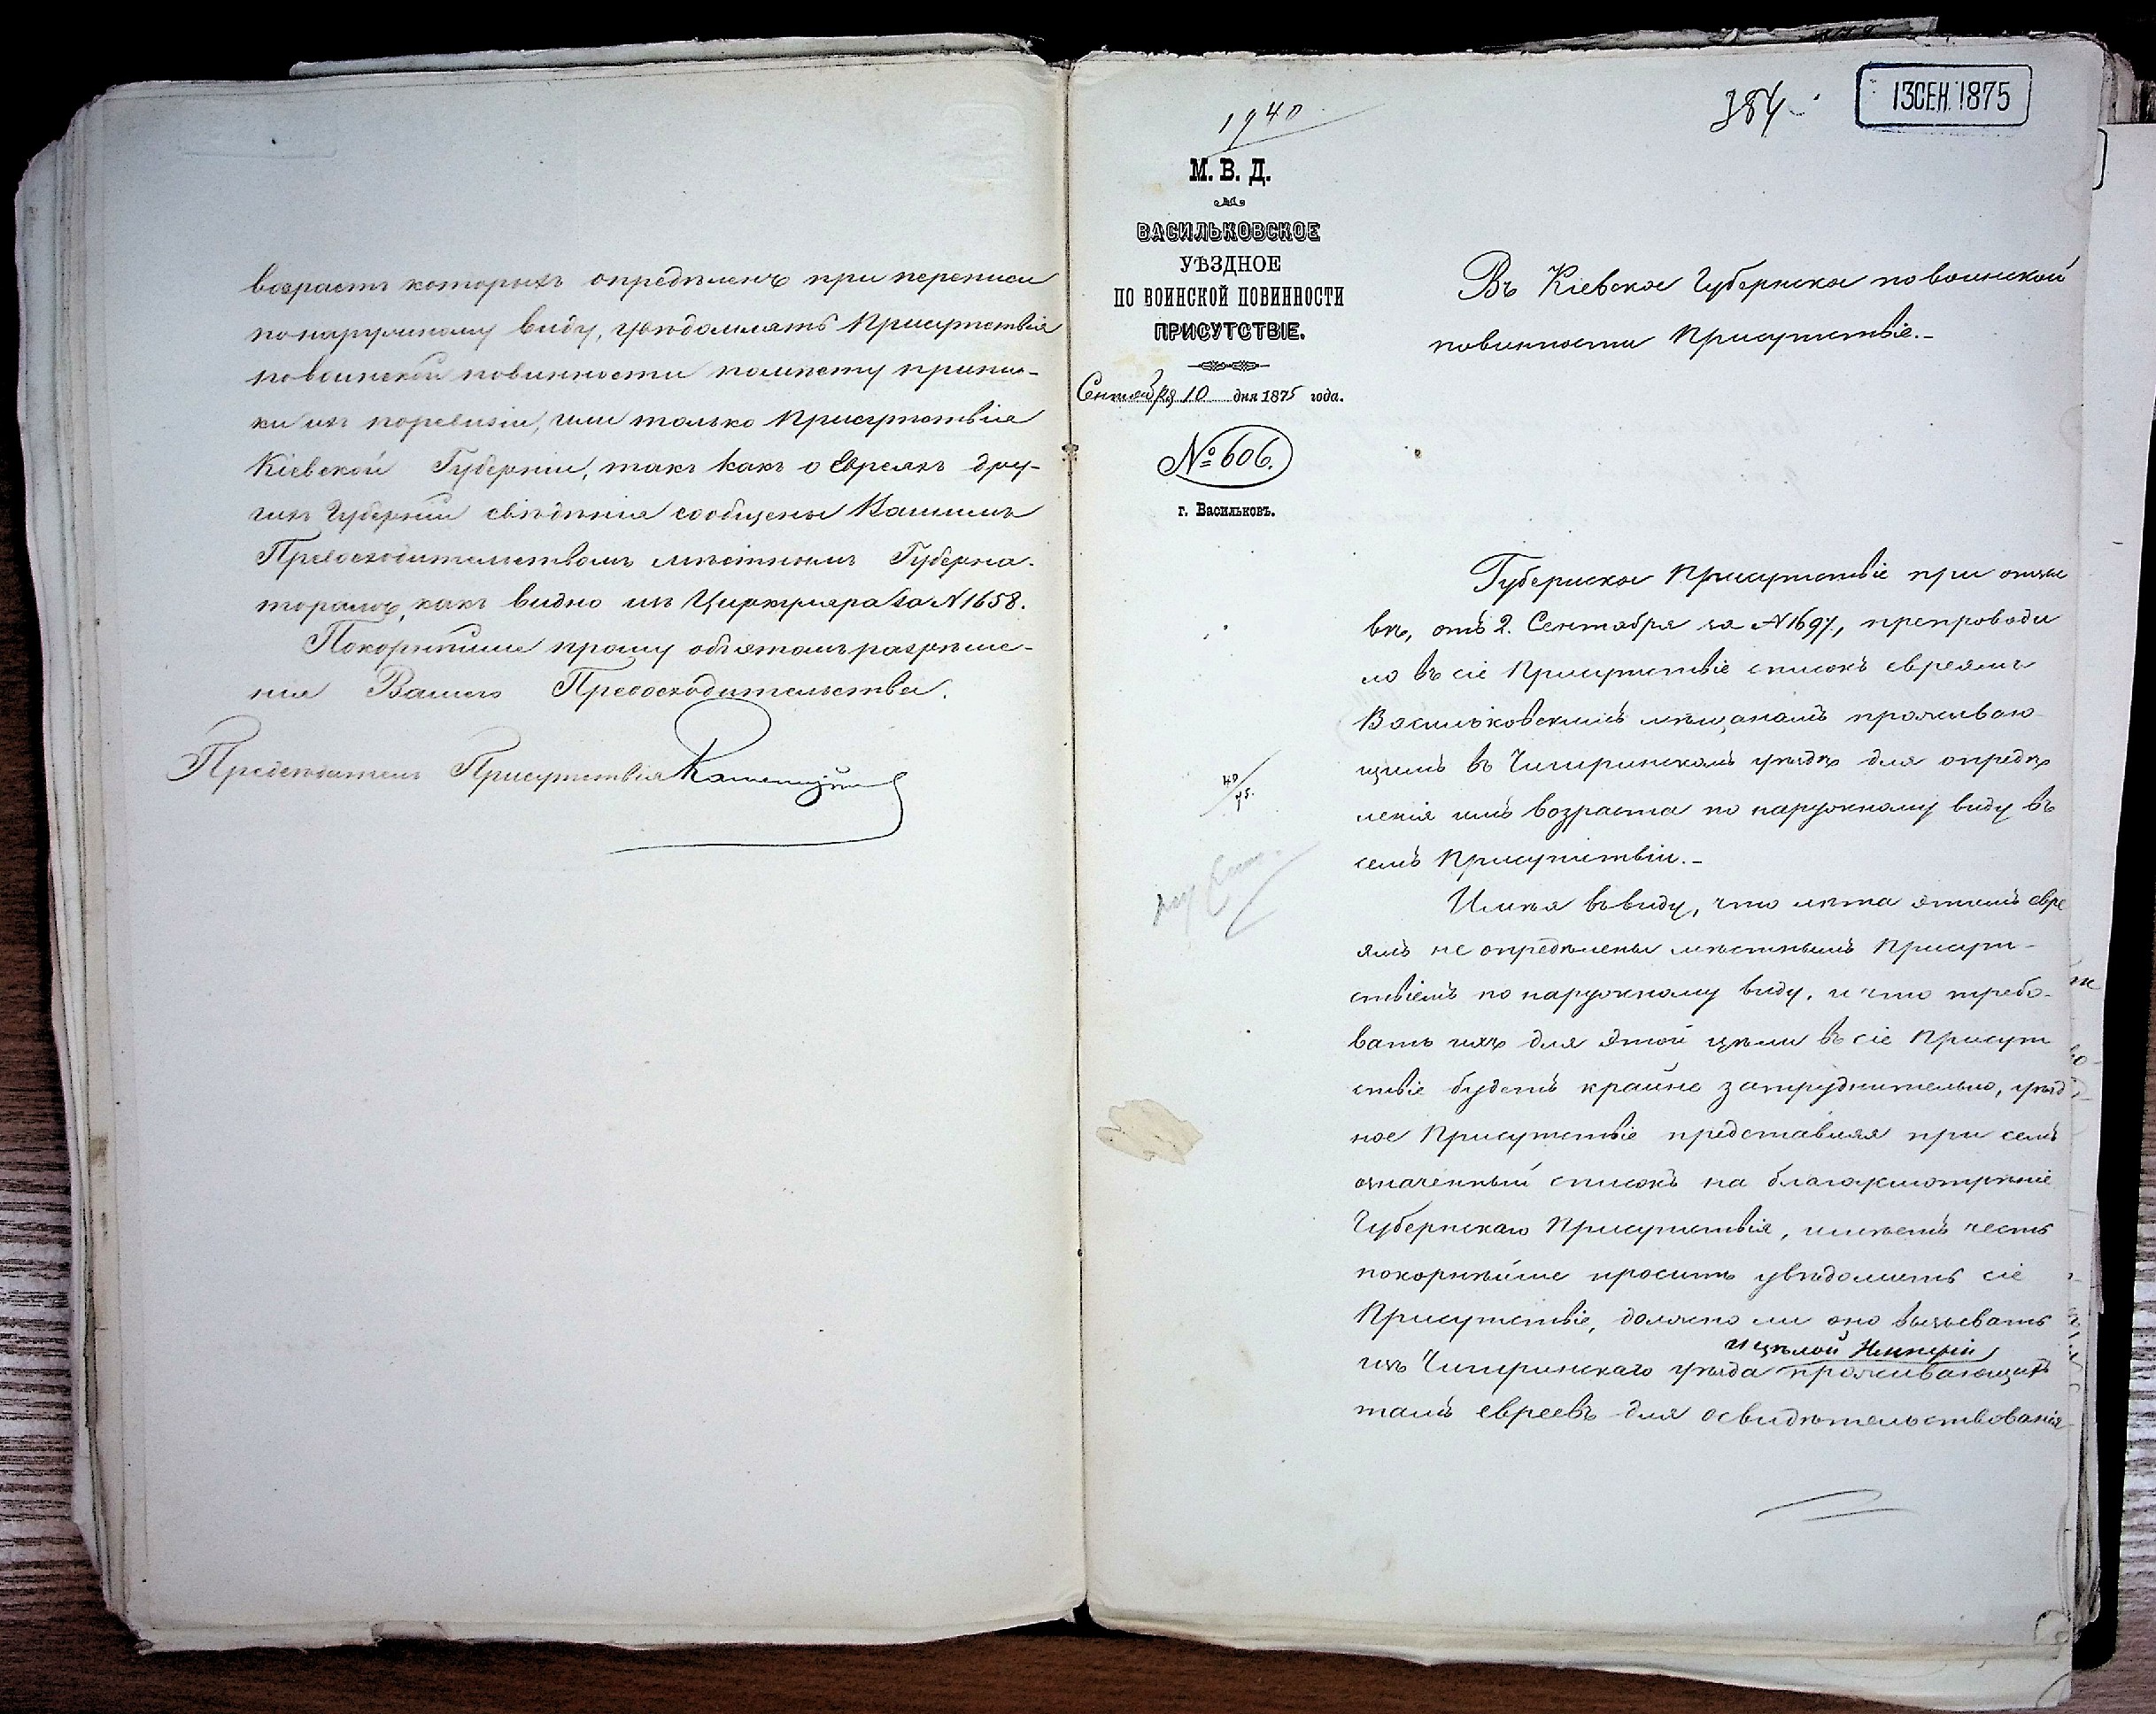 возрастъ которыхъ опредѣленъ при переписи
по наружному виду, увѣдомлять Присутствія
по воинской повинности по мѣсту припис-
ки ихъ по ревизіи, или только Присутствія
Кіевской Губерніи, такъ какъ о Евреяхъ дру-
гихъ Губерній свѣдѣнія сообщены Вашимъ
Превосходительствомъ мѣстнымъ Губерна-
торамъ, какъ видно изъ Циркуляра за № 1658.
Покорнѣйше прошу объ этомъ разрѣше-
нія Вашего Превосходительства.
Предсѣдатель Присутствія
1940
384
13 СЕН. 1875
М. В. Д.
ВАСИЛЬКОВСКОЕ
УѢЗДНОЕ
ПО ВОИНСКОЙ ПОВИННОСТИ
ПРИСУТСТВІЕ.
Сентября 10 дня 1875 года.
№ 606.
г. Васильковъ.
Въ Кіевское Губернское по воинской
повинности Присутствіе.-
Губернское Присутствіе при отзы
вѣ, отъ 2. Сентября за № 1697, препроводи
ло въ сіе Присутствіе списокъ евреямъ
Васильковскимъ мѣщанамъ проживаю-
щимъ въ Чигиринскомъ уѣздѣ для опредѣ
ленія имъ возраста по наружному виду въ
семъ Присутствіи.-
Имѣя въ виду, что лѣта этимъ евре
ямъ не опредѣлены мѣстнымъ Присут-
ствіемъ по наружному виду, и что требо-
вать ихъ для этой цѣли въ сіе Присут
ствіе будетъ крайне затруднительно, уѣзд
ное Присутствіе представляя при семъ
означенный списокъ на благоусмотрѣніе
Губернскаго Присутствія, имѣетъ честь
покорнѣйше просить увѣдомить сіе
Присутствіе, должно ли оно вызывать
изъ Чигиринскаго уѣзда проживающихъ
тамъ евреевъ для освидѣтельствованія